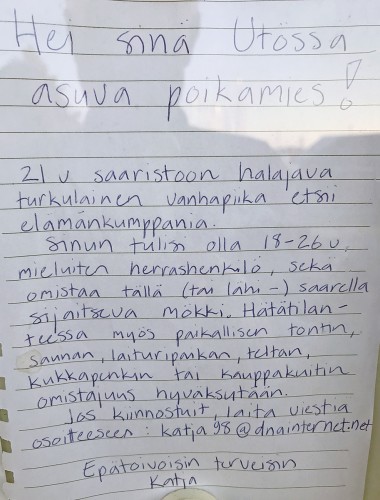 Hei sinä Utössa
asuva poikamies!
21 v saaristoon halajava
turkulainen vanhapiika etsii
elämänkumppania.
Sinun tulisi olla 18-26 v,
mieluiten herrashenkilö, sekä
omistaa tällä (tai lähi-) saarella
sijaitseva mökki. Hätätilan-
teessa myös paikallisen tontin,
saunan, laituripaikan, teltan,
kukkapenkin tai kauppakuitin
omistajuus hyväksytään.
Jos kiinnostuit, laita viestiä
osoiteeseen: katja98@dnainternet.net
Epätoivoisin terveisin
Katja